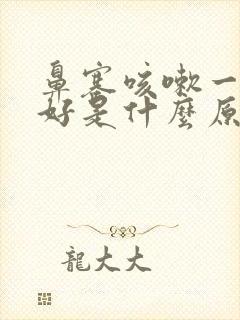 鼻塞咳嗽一
好是什麼原
龍大大